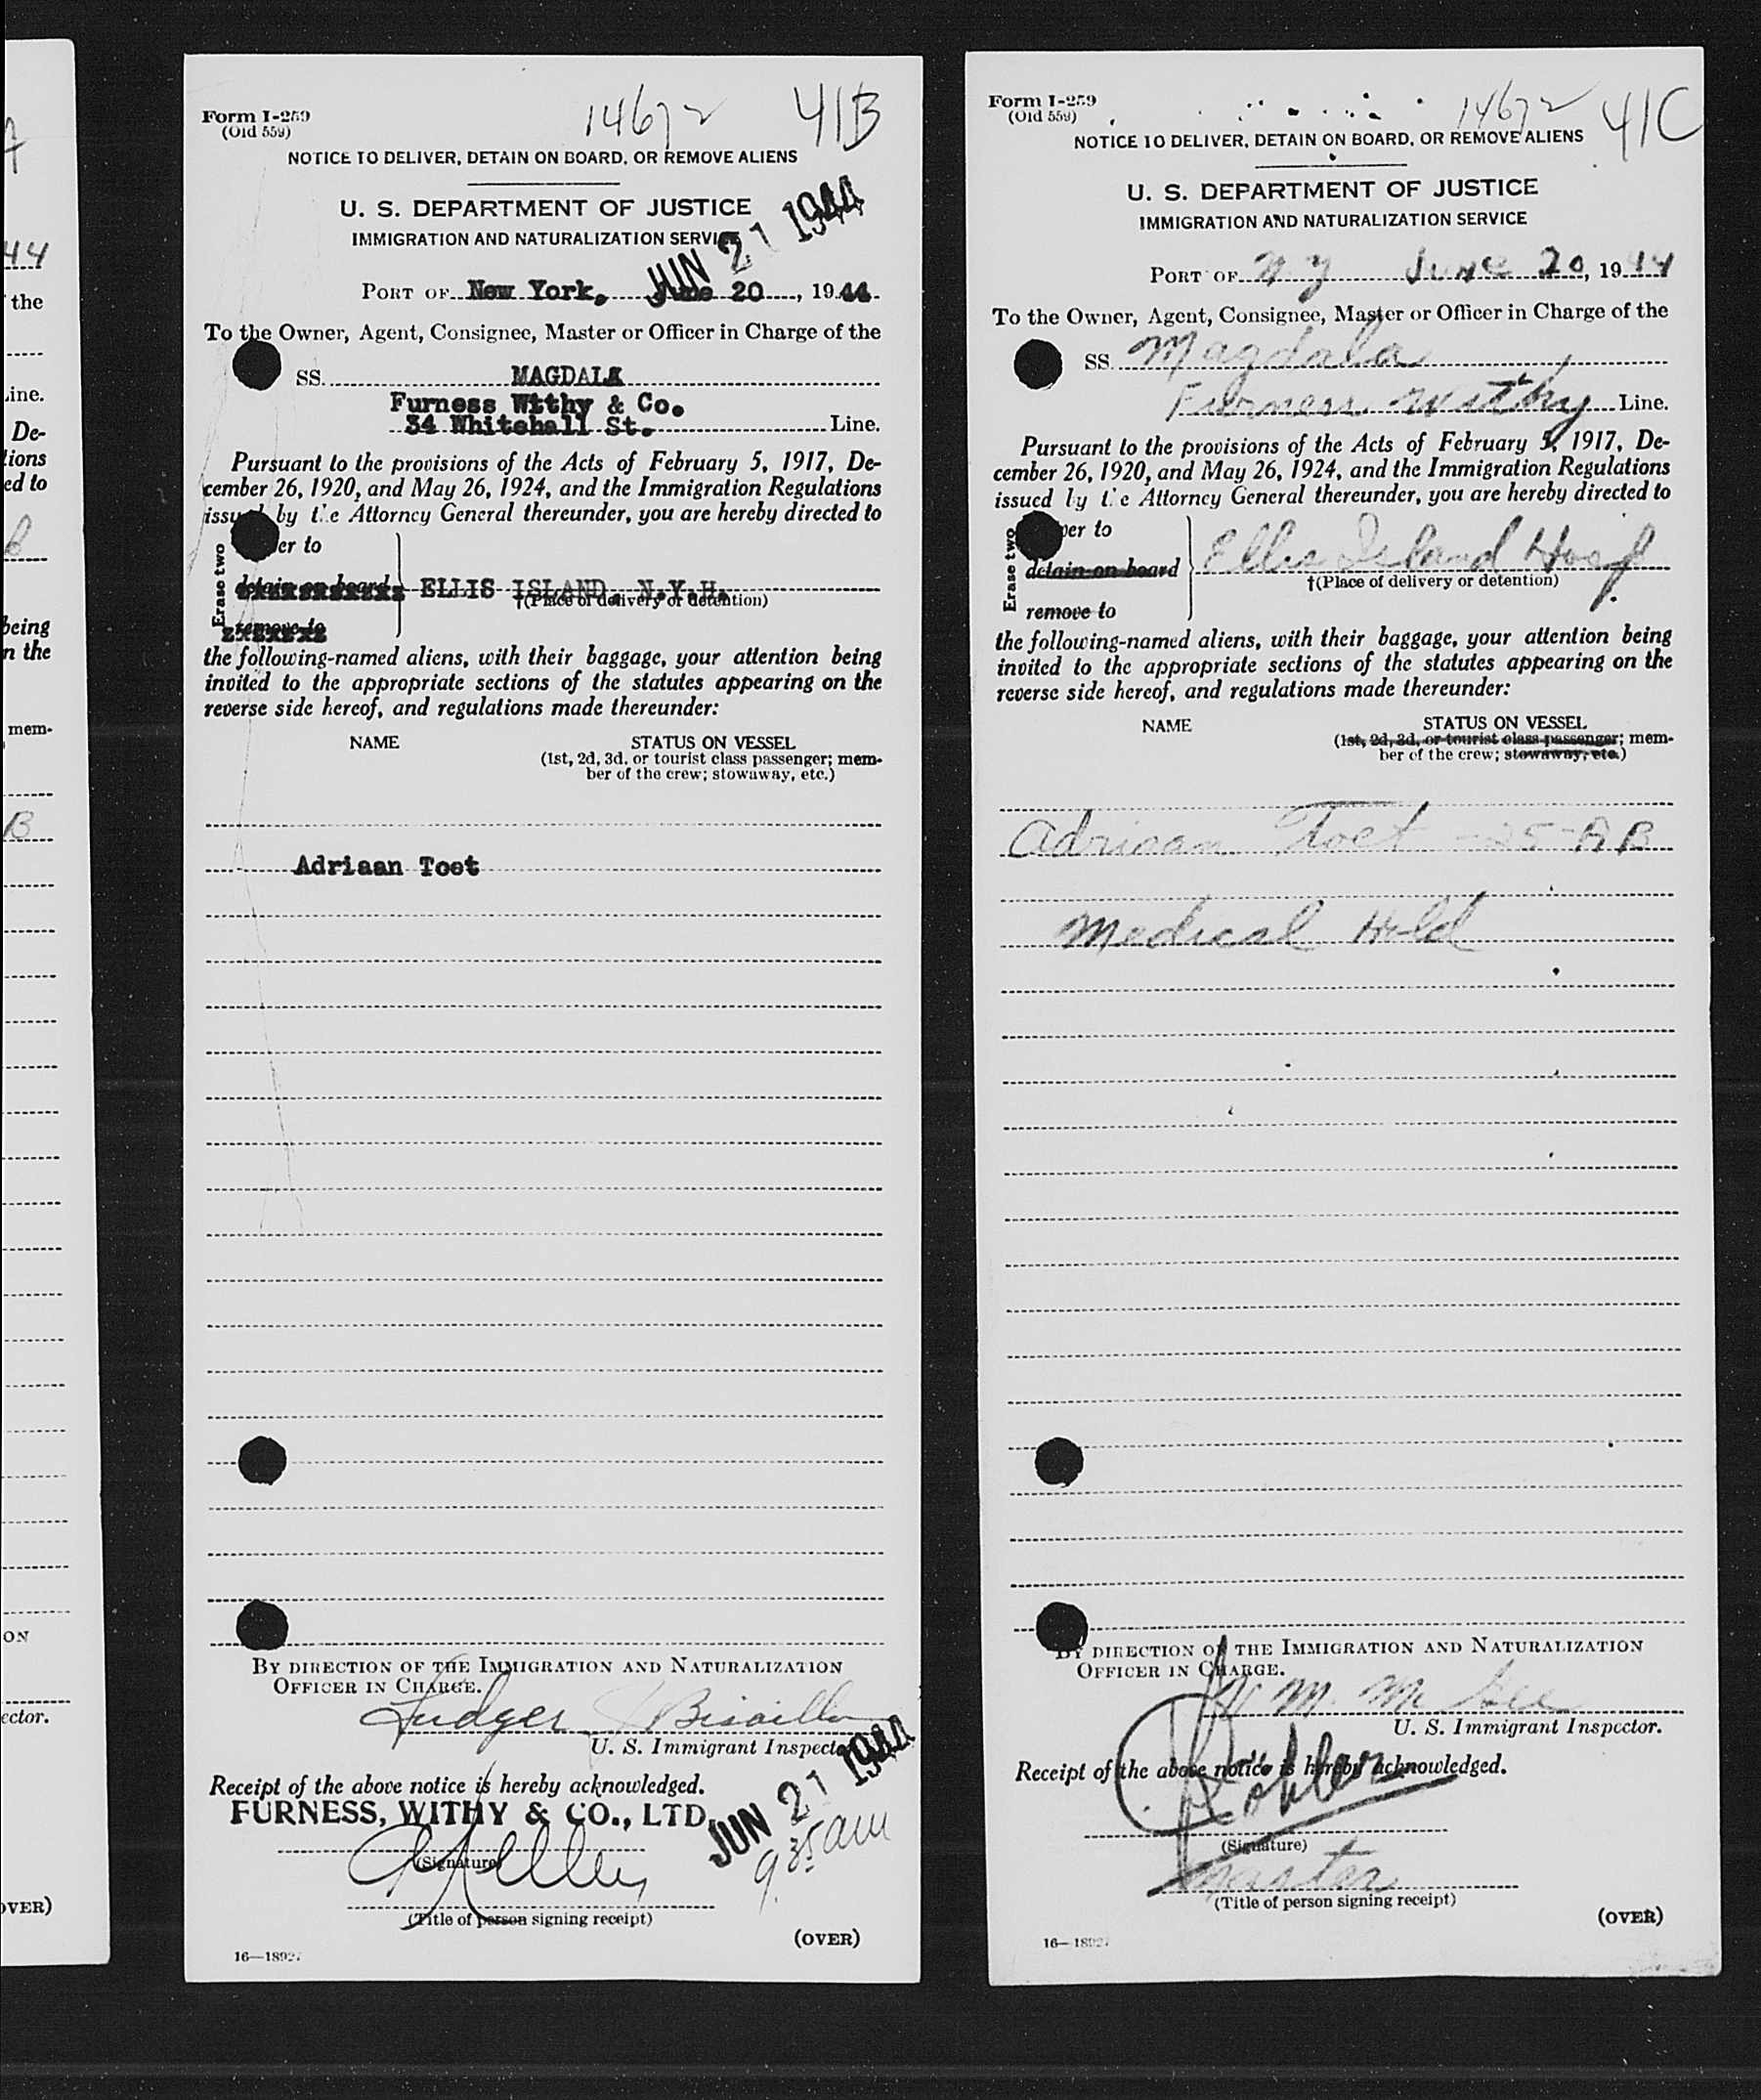 44
the
Line.
De-
tions
ed to
being
n the
mem-
B
ON
ector.
OVER)
Form I-259
(Old 559)
14672
41B
NOTICE TO DELIVER, DETAIN ON BOARD, OR REMOVE ALIENS
U. S. DEPARTMENT OF JUSTICE
IMMIGRATION AND NATURALIZATION SERVICE
JUN 21 1944
PORT OF New York, June 20, 1944.
To the Owner, Agent, Consignee, Master or Officer in Charge of the
SS. MAGDALA
Furness Withy & Co.
34 Whitehall St. Line.
Pursuant to the provisions of the Acts of February 5, 1917, De-
cember 26, 1920, and May 26, 1924, and the Immigration Regulations
issued by the Attorney General thereunder, you are hereby directed to
Erase two
er to
detain on board
ELLIS ISLAND, N.Y.H.
†(Place of delivery or detention)
remove to
the following-named aliens, with their baggage, your attention being
invited to the appropriate sections of the statutes appearing on the
reverse side hereof, and regulations made thereunder:
NAME
STATUS ON VESSEL
(1st, 2d, 3d, or tourist class passenger; mem-
ber of the crew; stowaway, etc.)
Adriaan Toet
BY DIRECTION OF THE IMMIGRATION AND NATURALIZATION
OFFICER IN CHARGE.
U. S. Immigrant Inspector.
Receipt of the above notice is hereby acknowledged.
FURNESS, WITHY & CO., LTD.
JUN 21 1944
9 35 am
(Signature)
(Title of person signing receipt)
(OVER)
16—18927
Form I-259
(Old 559)
14672
41C
NOTICE TO DELIVER, DETAIN ON BOARD, OR REMOVE ALIENS
U. S. DEPARTMENT OF JUSTICE
IMMIGRATION AND NATURALIZATION SERVICE
PORT OF N Y June 20, 1944
To the Owner, Agent, Consignee, Master or Officer in Charge of the
SS. Magdala
Furness Withy Line.
Pursuant to the provisions of the Acts of February 5, 1917, De-
cember 26, 1920, and May 26, 1924, and the Immigration Regulations
issued by the Attorney General thereunder, you are hereby directed to
Erase two
ver to
detain on board
Ellis Island Hosp.
†(Place of delivery or detention)
remove to
the following-named aliens, with their baggage, your attention being
invited to the appropriate sections of the statutes appearing on the
reverse side hereof, and regulations made thereunder:
NAME
STATUS ON VESSEL
(1st, 2d, 3d, or tourist class passenger; mem-
ber of the crew; stowaway, etc.)
Adriaan Toet - 25 - AB
Medical Hold
BY DIRECTION OF THE IMMIGRATION AND NATURALIZATION
OFFICER IN CHARGE.
U. S. Immigrant Inspector.
Receipt of the above notice is hereby acknowledged.
(Signature)
Master
(Title of person signing receipt)
(OVER)
16—18927